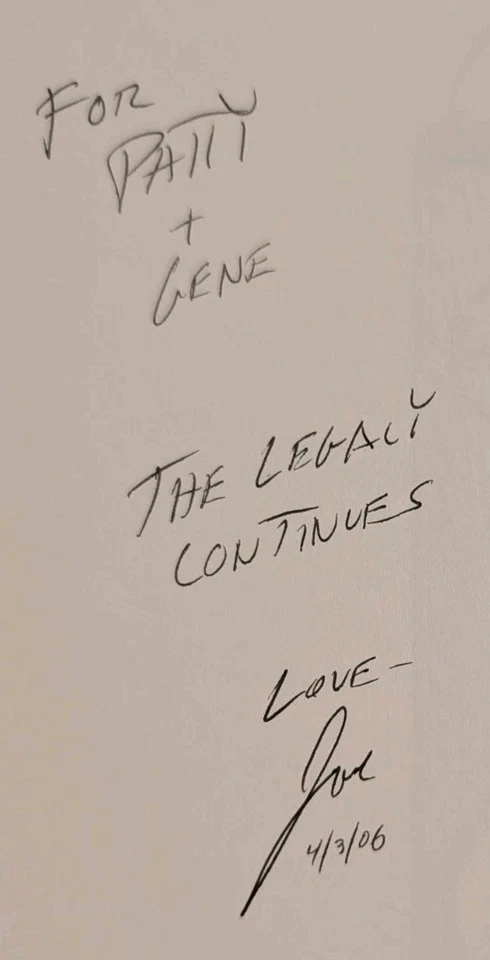 FOR
PATTY
+
GENE
THE LEGACY
CONTINUES
LOVE-
Joe
4/3/06